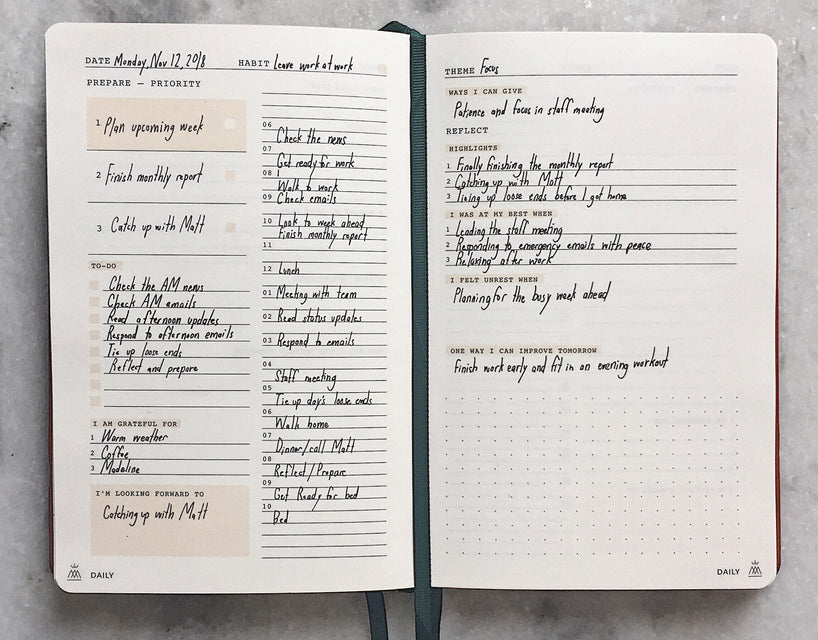 DATE Monday, Nov 12, 2018
HABIT Leave work at work
PREPARE — PRIORITY
1 Plan upcoming week
2 Finish monthly report
3 Catch up with Matt
TO-DO
Check the AM news
Check AM emails
Read afternoon updates
Respond to afternoon emails
Tie up loose ends
Reflect and prepare
I AM GRATEFUL FOR
1 Warm weather
2 Coffee
3 Madeline
I'M LOOKING FORWARD TO
Catching up with Matt
DAILY
06
Check the news
07
Get ready for work
08
Walk to work
09 Check emails
10 Look to week ahead
Finish monthly report
11
12 Lunch
01 Meeting with team
02 Read status updates
03 Respond to emails
04
Staff meeting
05
Tie up day's loose ends
06
Walk home
07
Dinner/call Matt
08
Reflect/Prepare
09
Get Ready for bed
10
Bed
THEME Focus
WAYS I CAN GIVE
Patience and focus in staff meeting
REFLECT
HIGHLIGHTS
1 Finally finishing the monthly report
2 Catching up with Matt
3 Tying up loose ends before I got home
I WAS AT MY BEST WHEN
1 Leading the staff meeting
2 Responding to emergency emails with peace
3 Relaxing after work
I FELT UNREST WHEN
Planning for the busy week ahead
ONE WAY I CAN IMPROVE TOMORROW
Finish work early and fit in an evening workout
DAILY